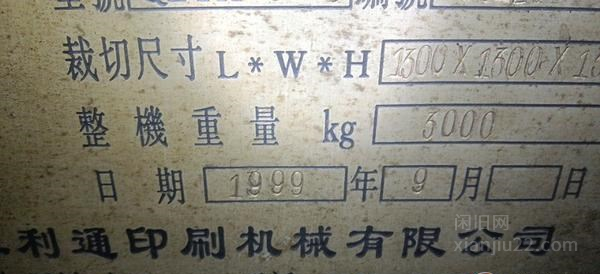 裁切尺寸 L*W*H 1300X1300X15
整機重量 kg 3000
日期 1999 年 9 月 日
利通印刷机械有限公司
闲旧网
xianjiu22.com